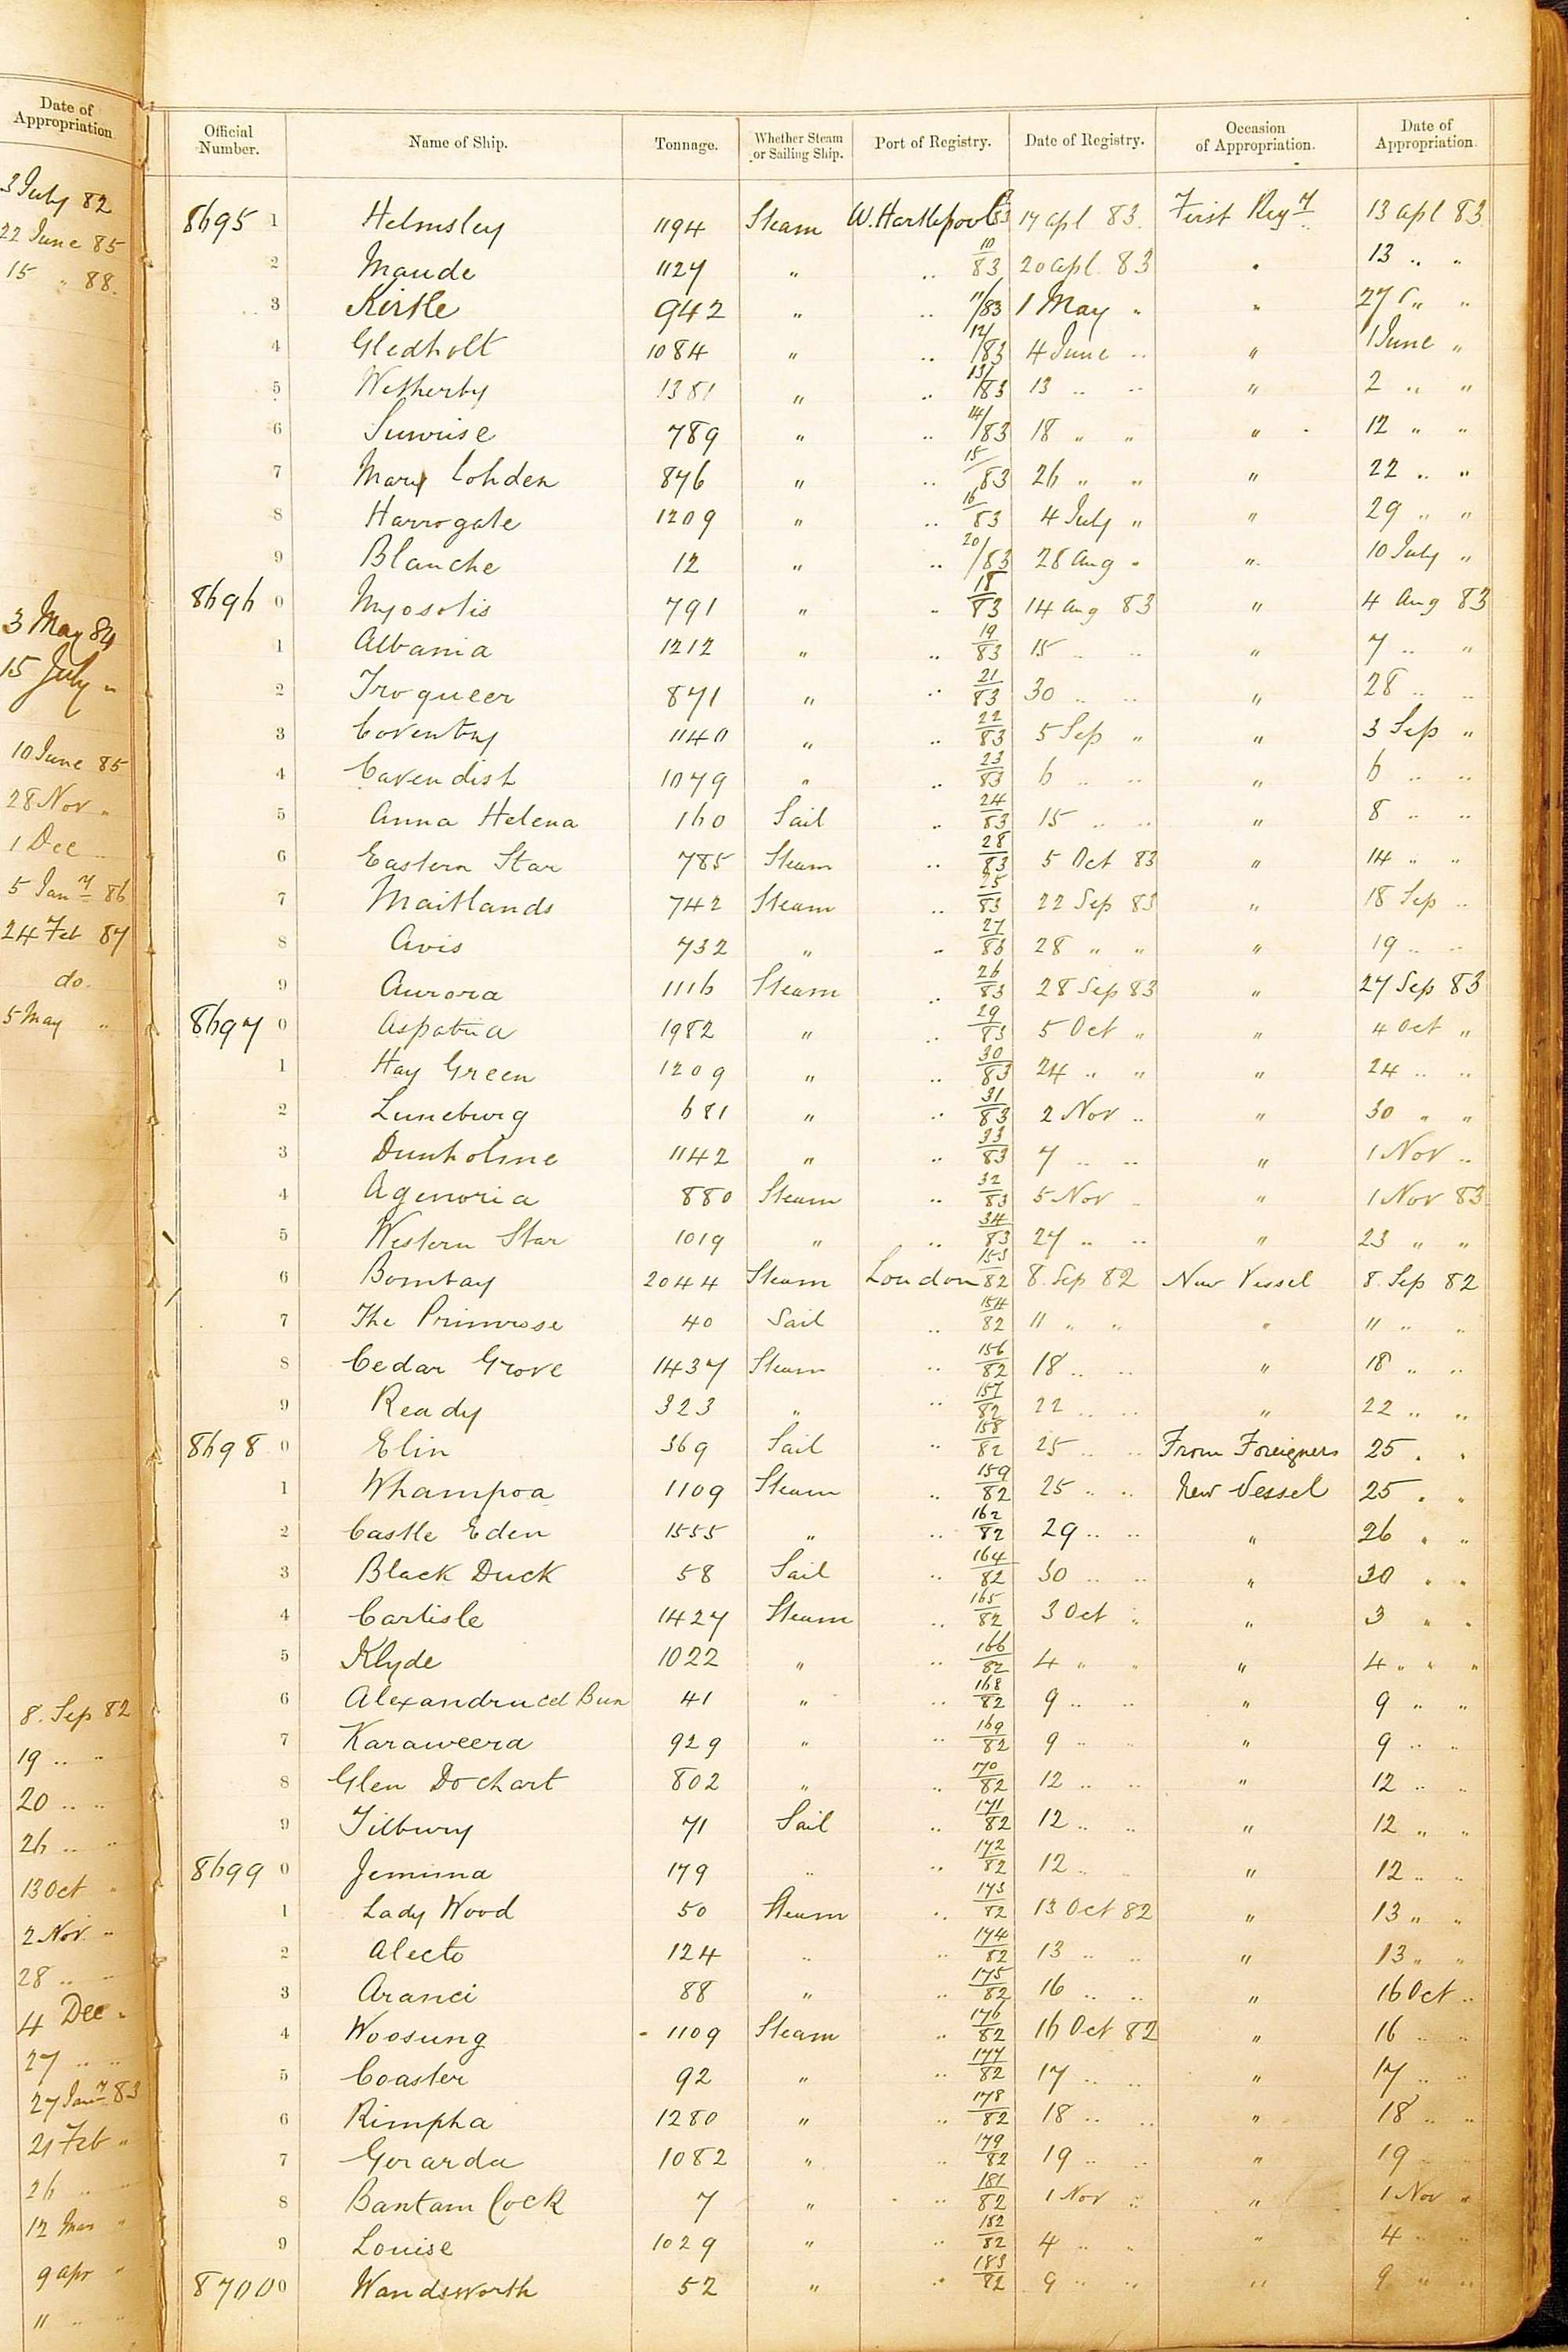 Date of Appropriation
3 July 82
22 June 85
15 " 88.
3 May 84
15 July "
10 June 85
28 Nov "
1 Dec "
5 Jany 86
24 Feb 87
do.
5 May "
8. Sep 82
19 " "
20 " "
26 " "
13 Oct "
2 Nov "
28 " "
4 Dec "
27 " "
27 Jany 83
21 Feb "
26 " "
12 Mar "
9 apr "
11 " "
Official Number. Name of Ship. Tonnage. Whether Steam or Sailing Ship. Port of Registry. Date of Registry. Occasion of Appropriation. Date of Appropriation.
8695 1 Helmsley 1194 Steam W. Hartlepool 83 17 apl 83. First Regy 13 apl 83
2 Maude 1127 " " 10/83 20 apl 83 " 13 " "
3 Kirtle 942 " " 11/83 1 May " " 27 " "
4 Gledholt 1084 " " 12/83 4 June " " 1 June "
5 Wetherby 1381 " " 13/83 13 " " " 2 " "
6 Sunrise 789 " " 14/83 18 " " " 12 " "
7 Mary Lohden 846 " " 15/83 26 " " " 22 " "
8 Harrogate 1209 " " 16/83 4 July " " 29 " "
9 Blanche 12 " " 20/83 28 Aug " " 10 July "
8696 0 Myosotis 791 " " 18/83 14 Aug 83 " 4 Aug 83
1 Albania 1212 " " 19/83 15 " " " 7 " "
2 Troqueer 871 " " 21/83 30 " " " 28 " "
3 Coventry 1140 " " 22/83 5 Sep " " 3 Sep "
4 Cavendish 1079 " " 23/83 6 " " " 6 " "
5 Anna Helena 160 Sail " 24/83 15 " " " 8 " "
6 Eastern Star 785 Steam " 28/83 5 Oct 83 " 14 " "
7 Maitlands 742 Steam " 25/83 22 Sep 83 " 18 Sep "
8 Avis 732 " " 27/83 28 " " " 19 " "
9 Aurora 1116 Steam " 26/83 28 Sep 83 " 27 Sep 83
8697 0 Aspatria 1982 " " 29/83 5 Oct " " 4 Oct "
1 Hay Green 1209 " " 30/83 24 " " " 24 " "
2 Luneburg 681 " " 31/83 2 Nov " " 30 " "
3 Dunholme 1142 " " 33/83 7 " " " 1 Nov "
4 Agenoria 880 Steam " 32/83 5 Nov " " 1 Nov 83
5 Western Star 1019 " " 34/83 27 " " " 23 " "
6 Bombay 2044 Steam London 153/82 8. Sep 82 New Vessel 8. Sep 82
7 The Primrose 40 Sail " 154/82 11 " " " 11 " "
8 Cedar Grove 1437 Steam " 156/82 18 " " " 18 " "
9 Ready 323 " " 157/82 22 " " " 22 " "
8698 0 Elin 369 Sail " 158/82 25 " " From Foreigners 25 " "
1 Whampoa 1109 Steam " 159/82 25 " " New Vessel 25 " "
2 Castle Eden 1555 " " 162/82 29 " " " 26 " "
3 Black Duck 58 Sail " 164/82 30 " " " 30 " "
4 Carlisle 1427 Steam " 165/82 3 Oct " " 3 " "
5 Klyde 1022 " " 166/82 4 " " " 4 " " "
6 41 " " 168/82 9 " " " 9 " "
7 Karaweera 929 " " 169/82 9 " " " 9 " "
8 Glen Dochart 802 " " 170/82 12 " " " 12 " "
9 Tilbury 71 Sail " 171/82 12 " " " 12 " "
8699 0 Jemima 179 " " 172/82 12 " " " 12 " "
1 Lady Wood 50 Steam " 173/82 13 Oct 82 " 13 " "
2 Alecto 124 " " 174/82 13 " " " 13 " "
3 Aranci 88 " " 175/82 16 " " " 16 Oct "
4 Woosung 1109 Steam " 176/82 16 Oct 82 " 16 " "
5 Coaster 92 " " 177/82 17 " " " 17 " "
6 Rimpha 1280 " " 178/82 18 " " " 18 " "
7 Gerarda 1082 " " 179/82 19 " " " 19 " "
8 Bantam Cock 7 " " 181/82 1 Nov " " 1 Nov "
9 Louise 1029 " " 182/82 4 " " " 4 " "
8700 0 Wandsworth 52 " " 183/82 9 " " " 9 " "